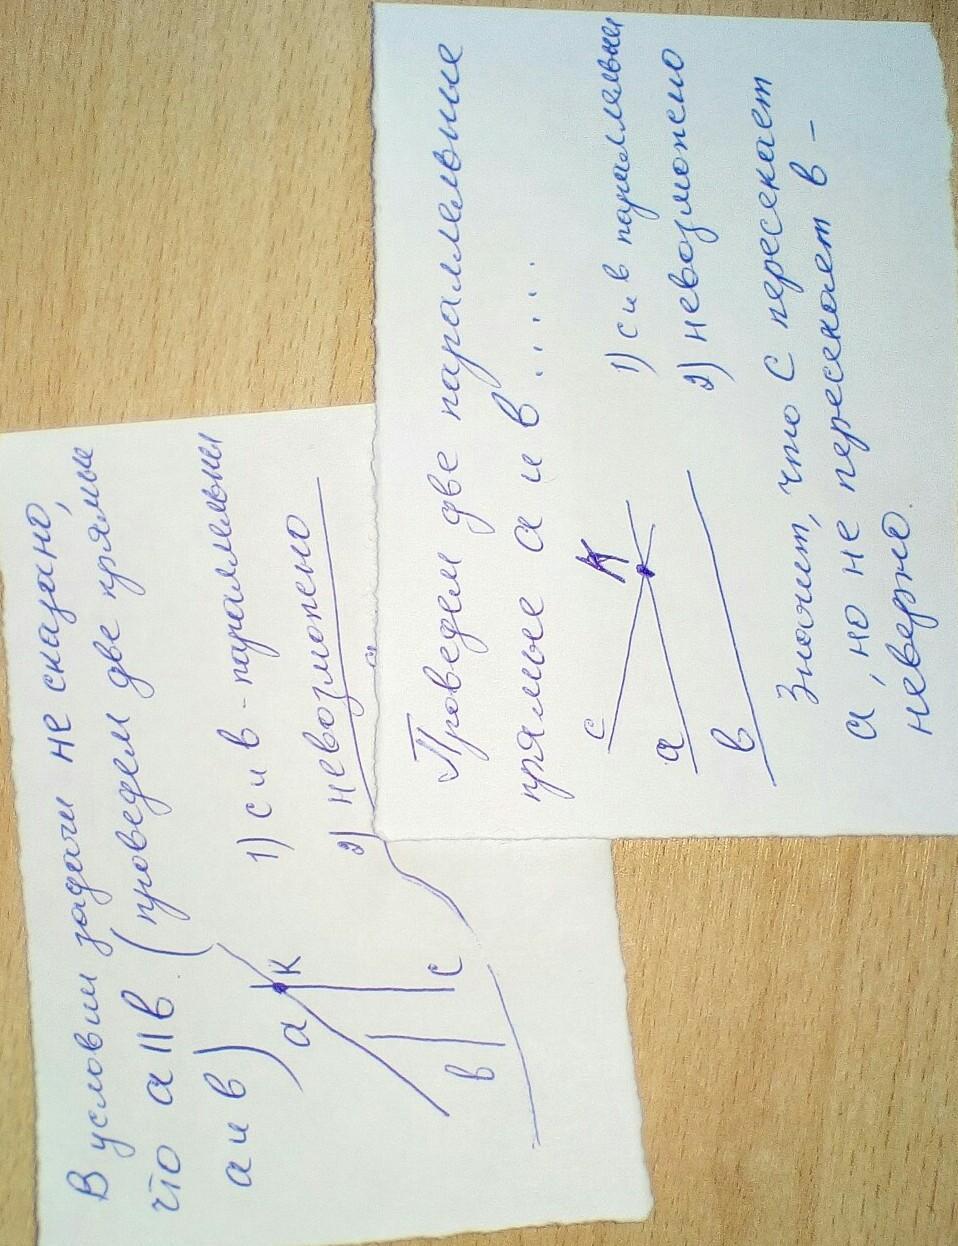 В условии задачи не сказано,
что а || в (проведем две прямые
а и в)
1) с и в - параллельны
2) невозможно
а
К
в
с
а
Проведем две параллельные
прямые а и в .....
с
К
а
в
1) с и в параллельны
2) невозможно
Значит, что с пересекает
а, но не пересекает в -
неверно.